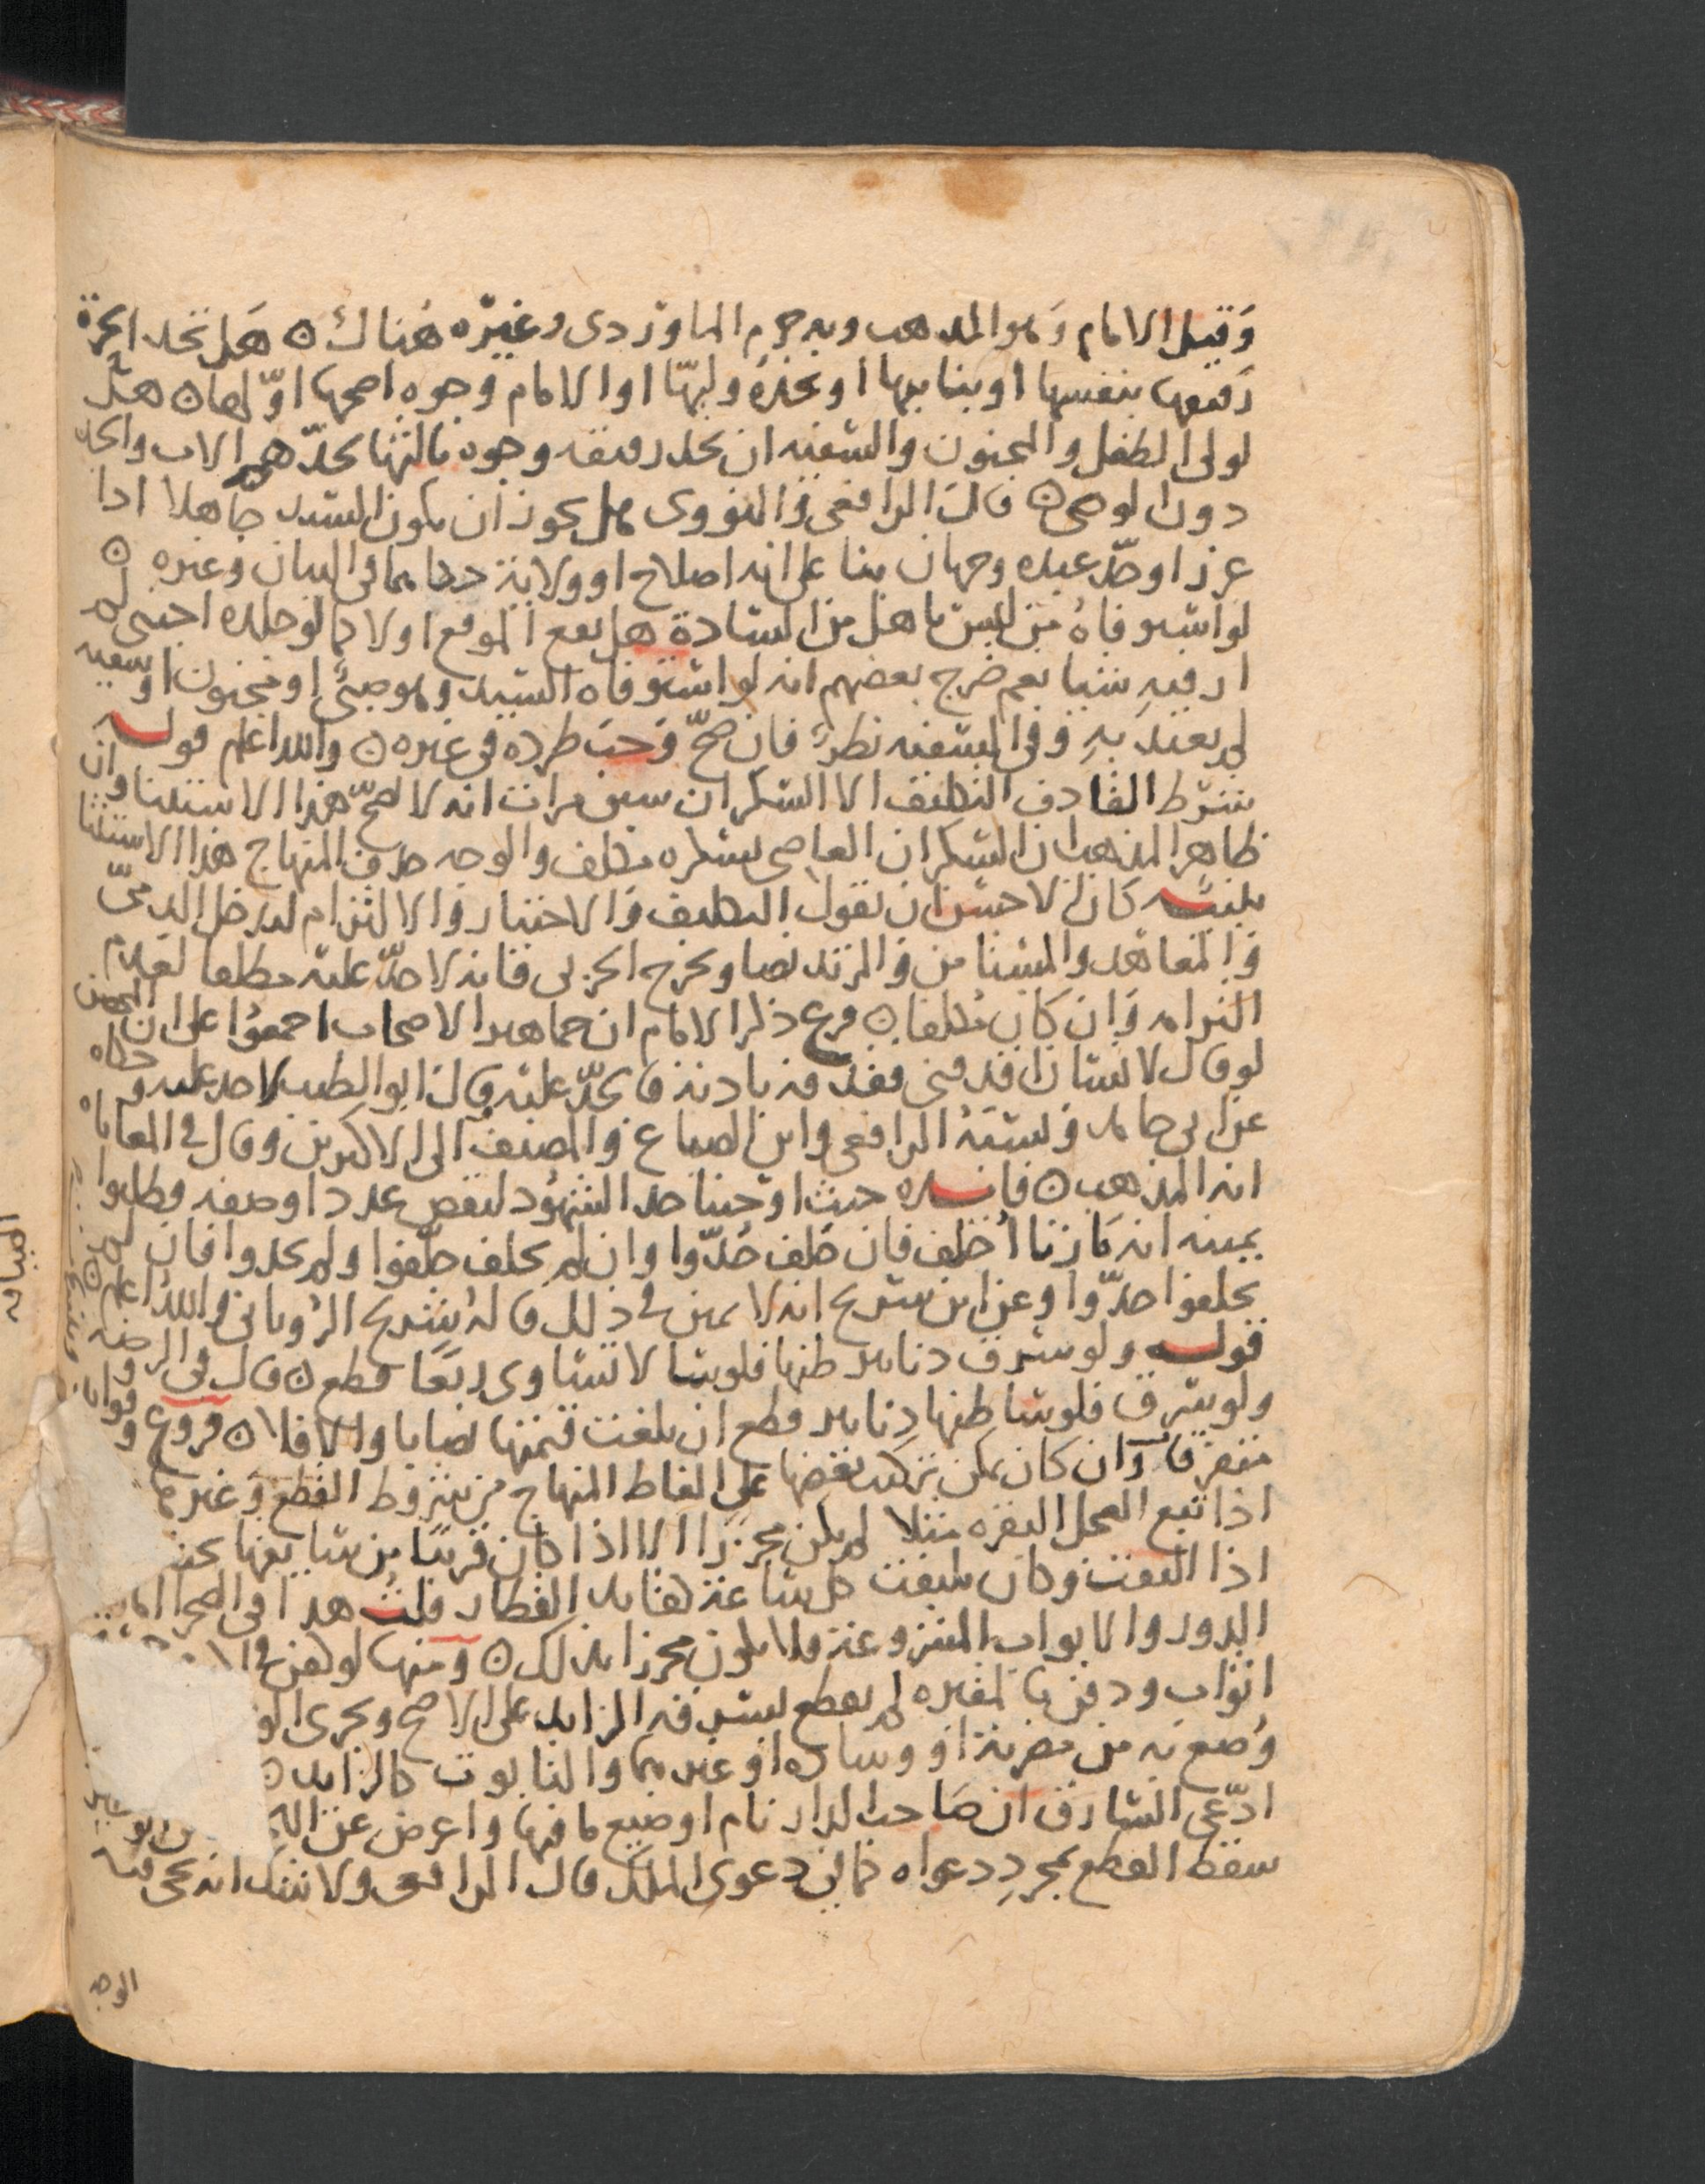 وقيل الامام وهو المذهب وبه جزم الماوردي وغيره هناك ۞ هل تحد الحرة
رقيقها بنفسها او بنايبها او يحده وليها او الامام وجوه اصحها اولها ۞ هل
لولي الطفل والمجنون والسفيه ان يحد رقيقه وجوه ثالثها يحد الاب والجد
دون الوصي ۞ قال الرافعي والنووي هل يجوز ان يكون السيد جاهلا اذا
عزر او حد عبده وجهان بنا على انه اصلاح او ولاية حكاهما في البيان وغيره ۞
لو استوفاه من ليس باهل من السادة هل يقع الموقع اولا كما لو جلده اجنبي لم
ار فيه شيا نعم خرج بعضهم انه لو استوفاه السيد وهو صبي او مجنون او سفيه
لم يعتد به وفي السفيه نظر فان صح وجب طرده في غيره ۞ والله اعلم قوله
شرط القاذف التكليف الا السكران سبق مرات انه لا يصح هذا الاستثنا وان
ظاهر المذهب ان السكران العاصي بسكره مكلف والوجه حذف المنهاج هذا الاستثنا
تنبيه كان الاحسن ان نقول التكليف والاختيار والالتزام ليدخل الذمي
والمعاهد والمستامن والمرتد نصا ويخرج الحربي فانه لا حد عليه مطلقا لعدم
التزامه وان كان مكلفا ۞ فرع ذكر الامام ان جماهير الاصحاب اجمعوا على ان المحصن
لو قال لانسان اقذفني فقذفه باذنه فا يحد عليه قال ابو الطيب لا حد عليه وحكاه
عن ابي حامد ونسبه الرافعي وابن الصباغ والمصنف الى الاكثرين وقال في المعاياه
انه المذهب ۞ فايده حيث اوجبنا حد الشهود لنقص عدد او صفه وطلبوا
يمينه انه ما زنا احلف فان حلف حدوا وان لم يحلف حلفوا ولم يحدوا فان لم
يحلفوا حدوا وعن ابن سريج انه لا يمين في ذلك قاله شريح الروياني والله اعلم ۞
قوله ولو سرق دنانير ظنها فلوسا لا تساوي ربعا قطع ۞ قال في الروضه
ولو سرق فلوسا ظنها دنانير قطع ان بلغت قيمتها نصابا والا فلا ۞ فروع وفوايد
متفرقه وان كان يمكن تركيب بعضها على الفاظ المنهاج من شروط القطع وغيرها
اذا تبع العجل البقره مثلا لم يكن محرزا الا اذا كان قريبا من سايقها بحيث
اذا التفت وكان يلتفت كل ساعة كقايد القطار قلت هذا في الصحرا اما
الدور والابواب المشروعة فلا يكون محرزا بذلك ۞ ومنها لو كفن في
اثواب ودفن بالمقبره لم يقطع بسرقه الزايد على الاصح ويجري
وضع به من مضربة او وسادة او غيرهما والتابوت كالزايد ۞
ادعى السارق ان صاحب الدار نام او ضيع ما فيها واعرض عن
سقط القطع بمجرد دعواه كما في دعوى الملك قال الرافعي ولا شك انه يجي فيه
الوجه